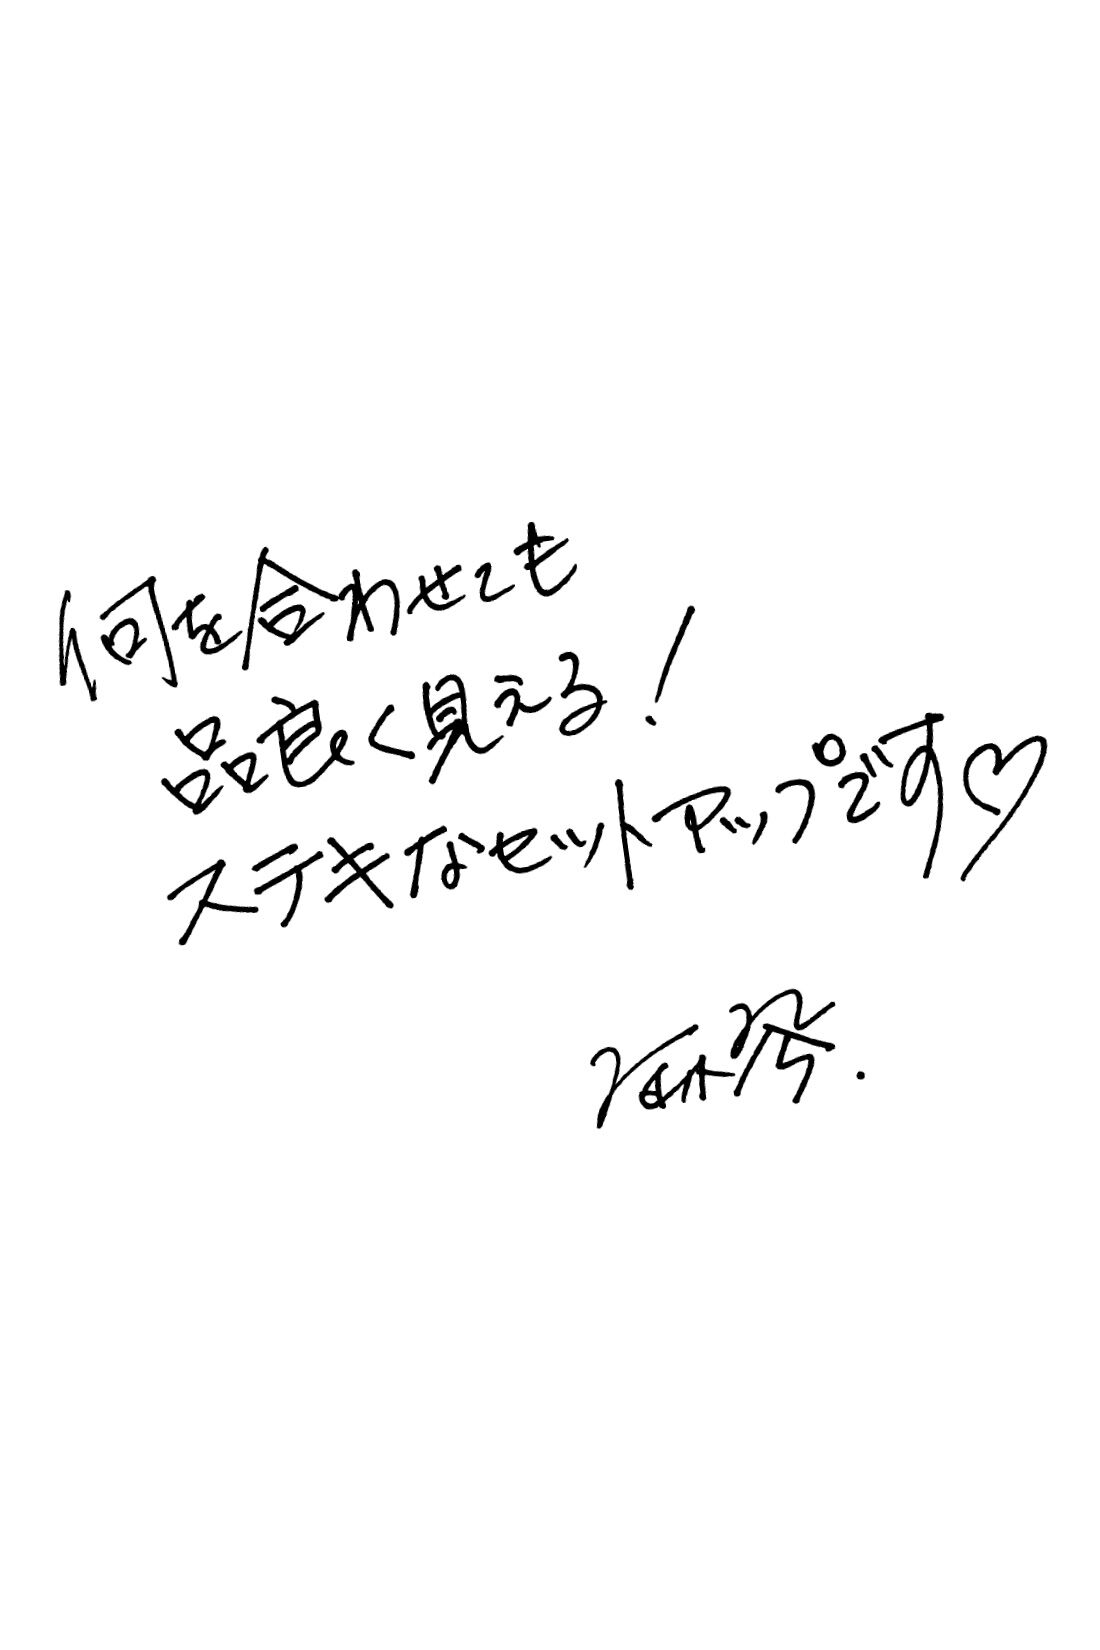 何を合わせても
品良く見える!
ステキなセットアップです♡